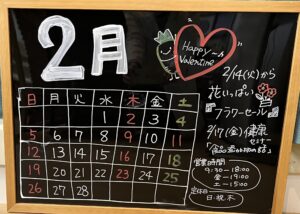 2月
Happy
Valentine
日 月 火 水 木 金 土
1 2 3 4
5 6 7 8 9 10 11
12 13 14 15 16 17 18
19 20 21 22 23 24 25
26 27 28
2/14(火)から
花いっぱい
フラワーセール
2/17(金)健康
セミナー
営業時間
9:30-18:00
金-19:00
土-15:00
定休日
日・祝・木